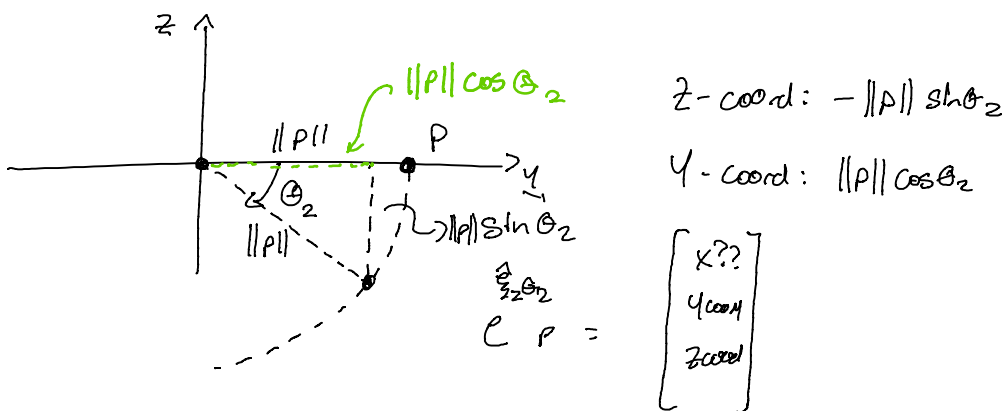 Z
||P|| cos θ₂
||P||
P
y
θ₂
||P||
||P|| sin θ₂
Z-coord: -||P|| sin θ₂
Y-coord: ||P|| cos θ₂
e^{ξ̂₂θ₂} P =
x??
ycoord
zcoord